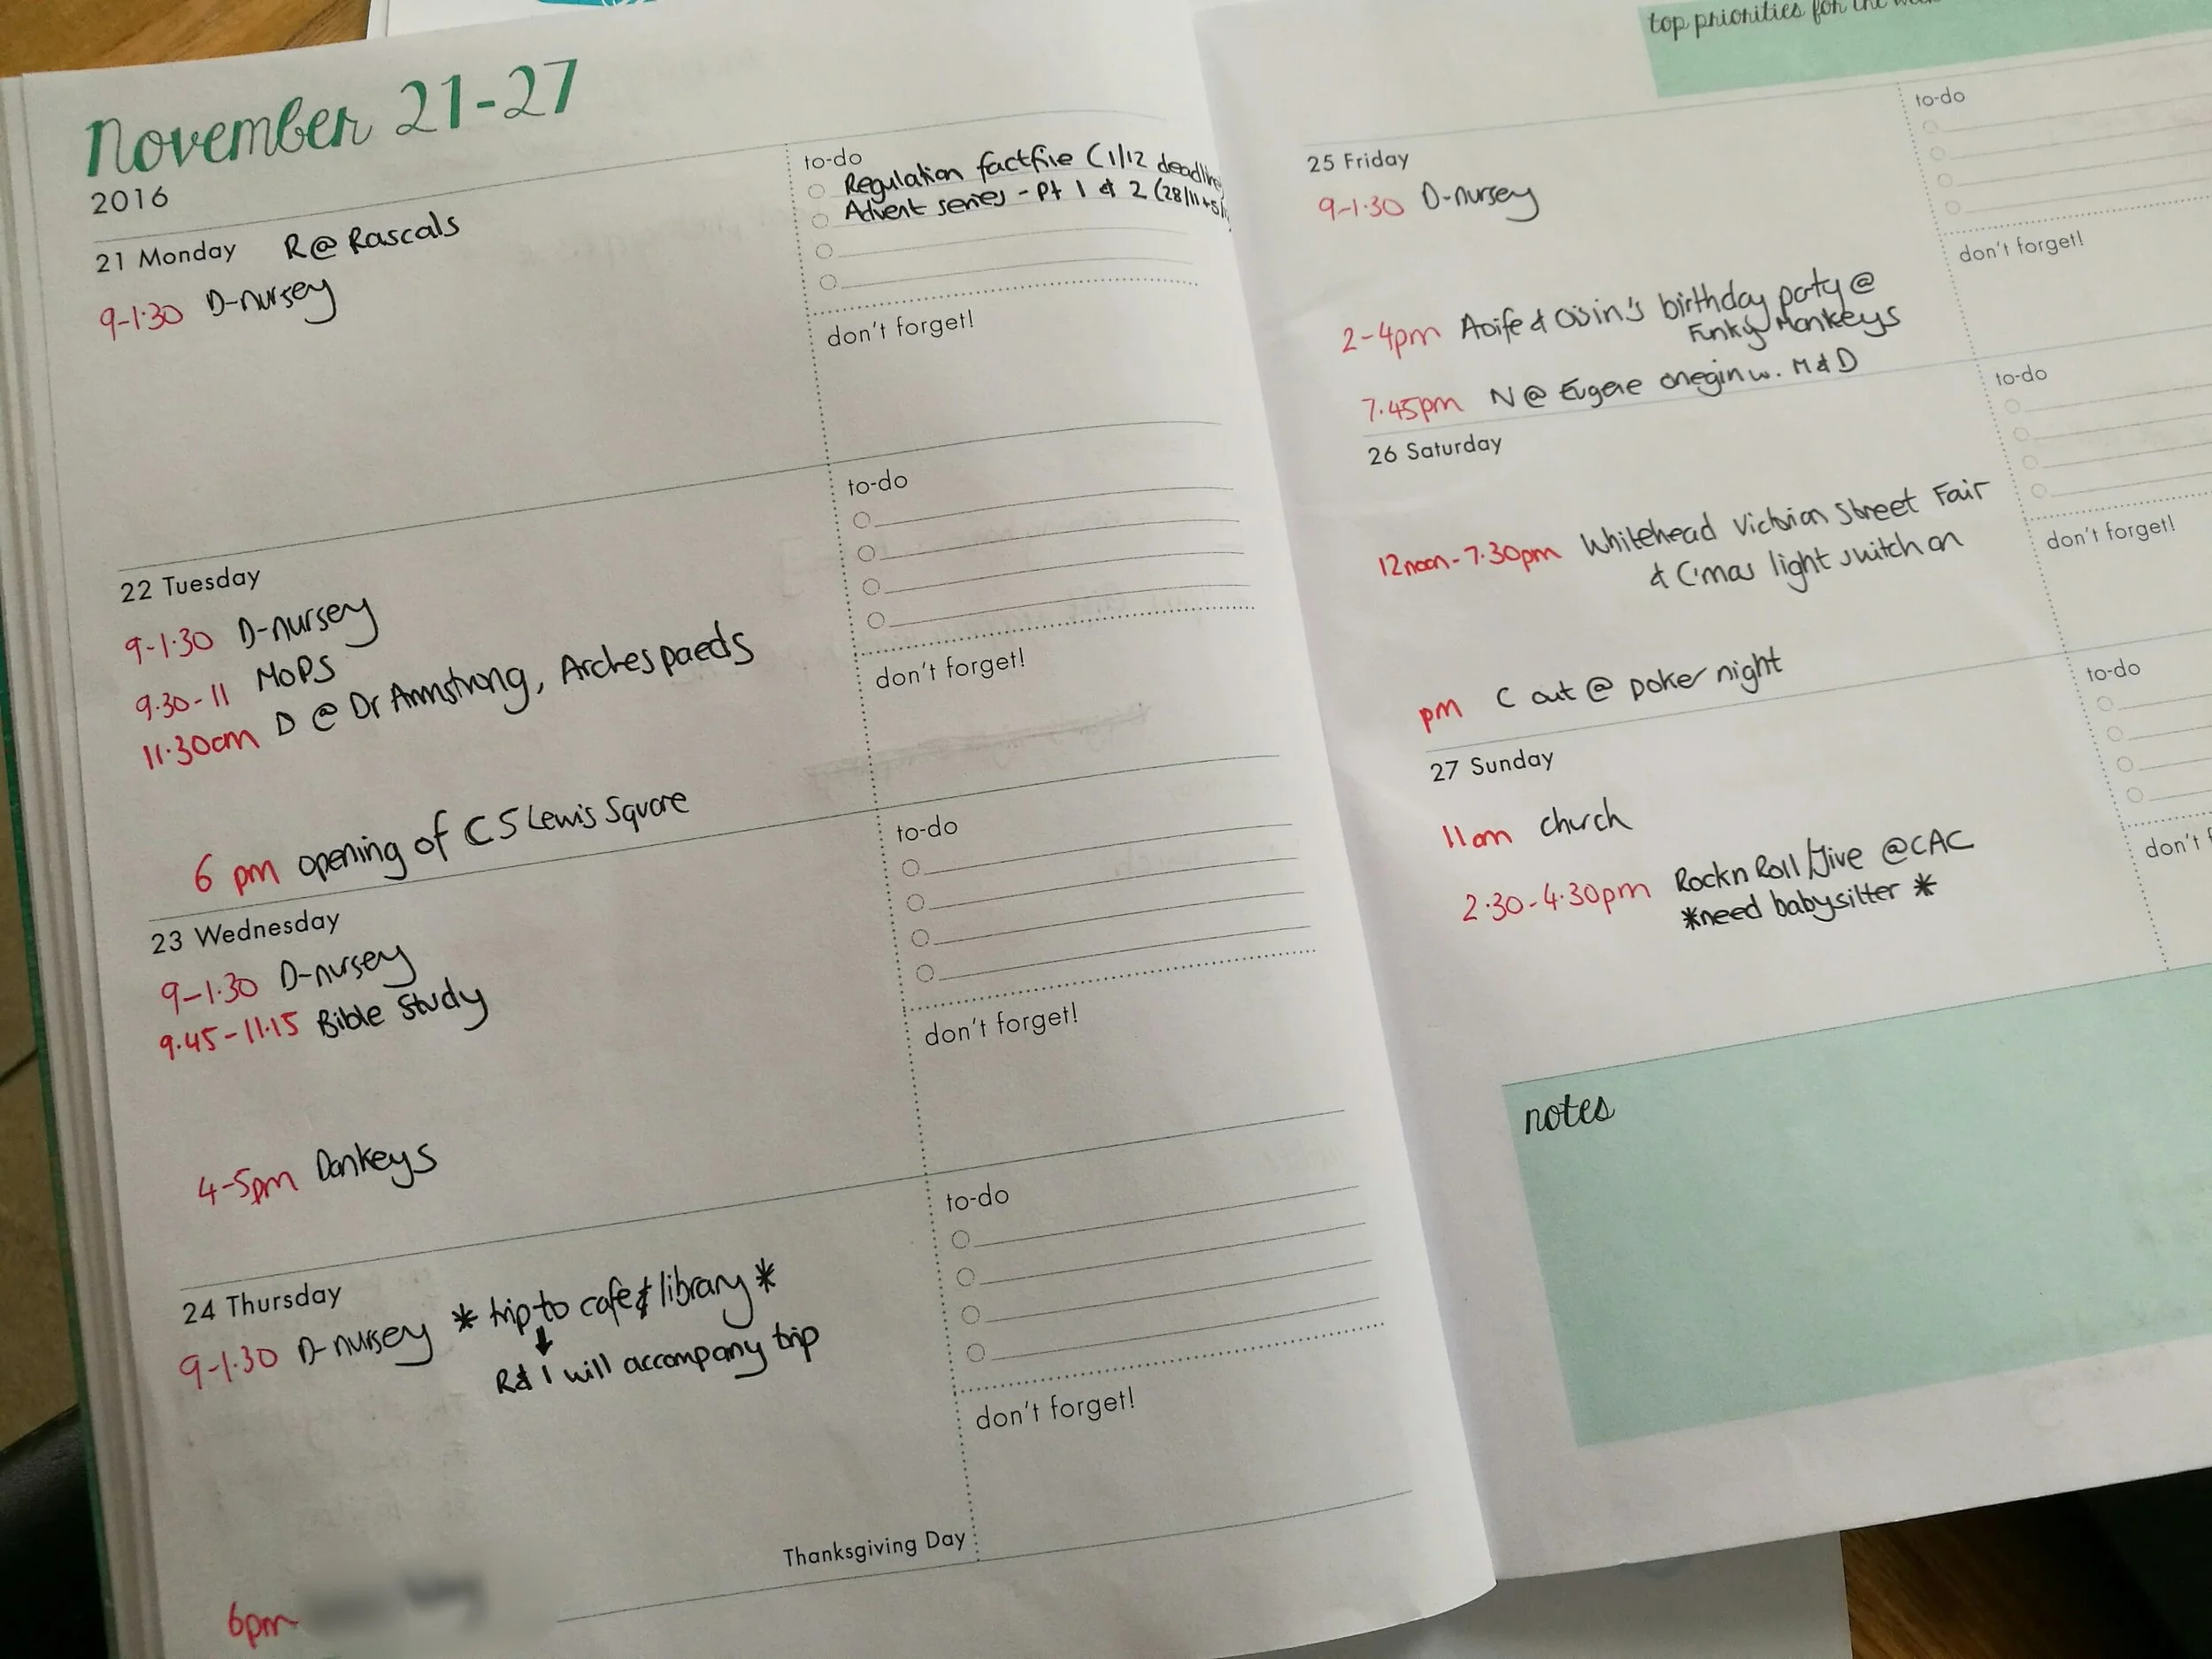 November 21-27
2016
21 Monday R@Rascals
9-1.30 D-nursey
to-do
Regulation factfile (1/12 deadline)
Advent series - Pt 1 & 2 (28/11+5/
don't forget!
22 Tuesday
9-1.30 D-nursey
9.30-11 MoPS
11.30am D @ Dr Armstrong, Arches paeds
6 pm opening of CS Lewis Square
to-do
don't forget!
23 Wednesday
9-1.30 D-nursey
9.45-11.15 Bible Study
4-5pm Donkeys
to-do
don't forget!
24 Thursday
9-1.30 D-nursey * trip to cafe & library *
R& I will accompany trip
6pm
to-do
don't forget!
Thanksgiving Day
top priorities for the
25 Friday
9-1.30 D-nursey
2-4pm Aoife & Oisin's birthday party @
Funky Monkeys
7.45pm N@ Eugene Onegin w. M&D
to-do
don't forget!
26 Saturday
12noon-7.30pm Whitehead Victorian Street Fair
& C'mas light switch on
pm C out @ poker night
to-do
don't forget!
27 Sunday
11am church
2.30-4.30pm Rock n Roll/Jive @CAC
*need babysitter *
to-do
don't
notes